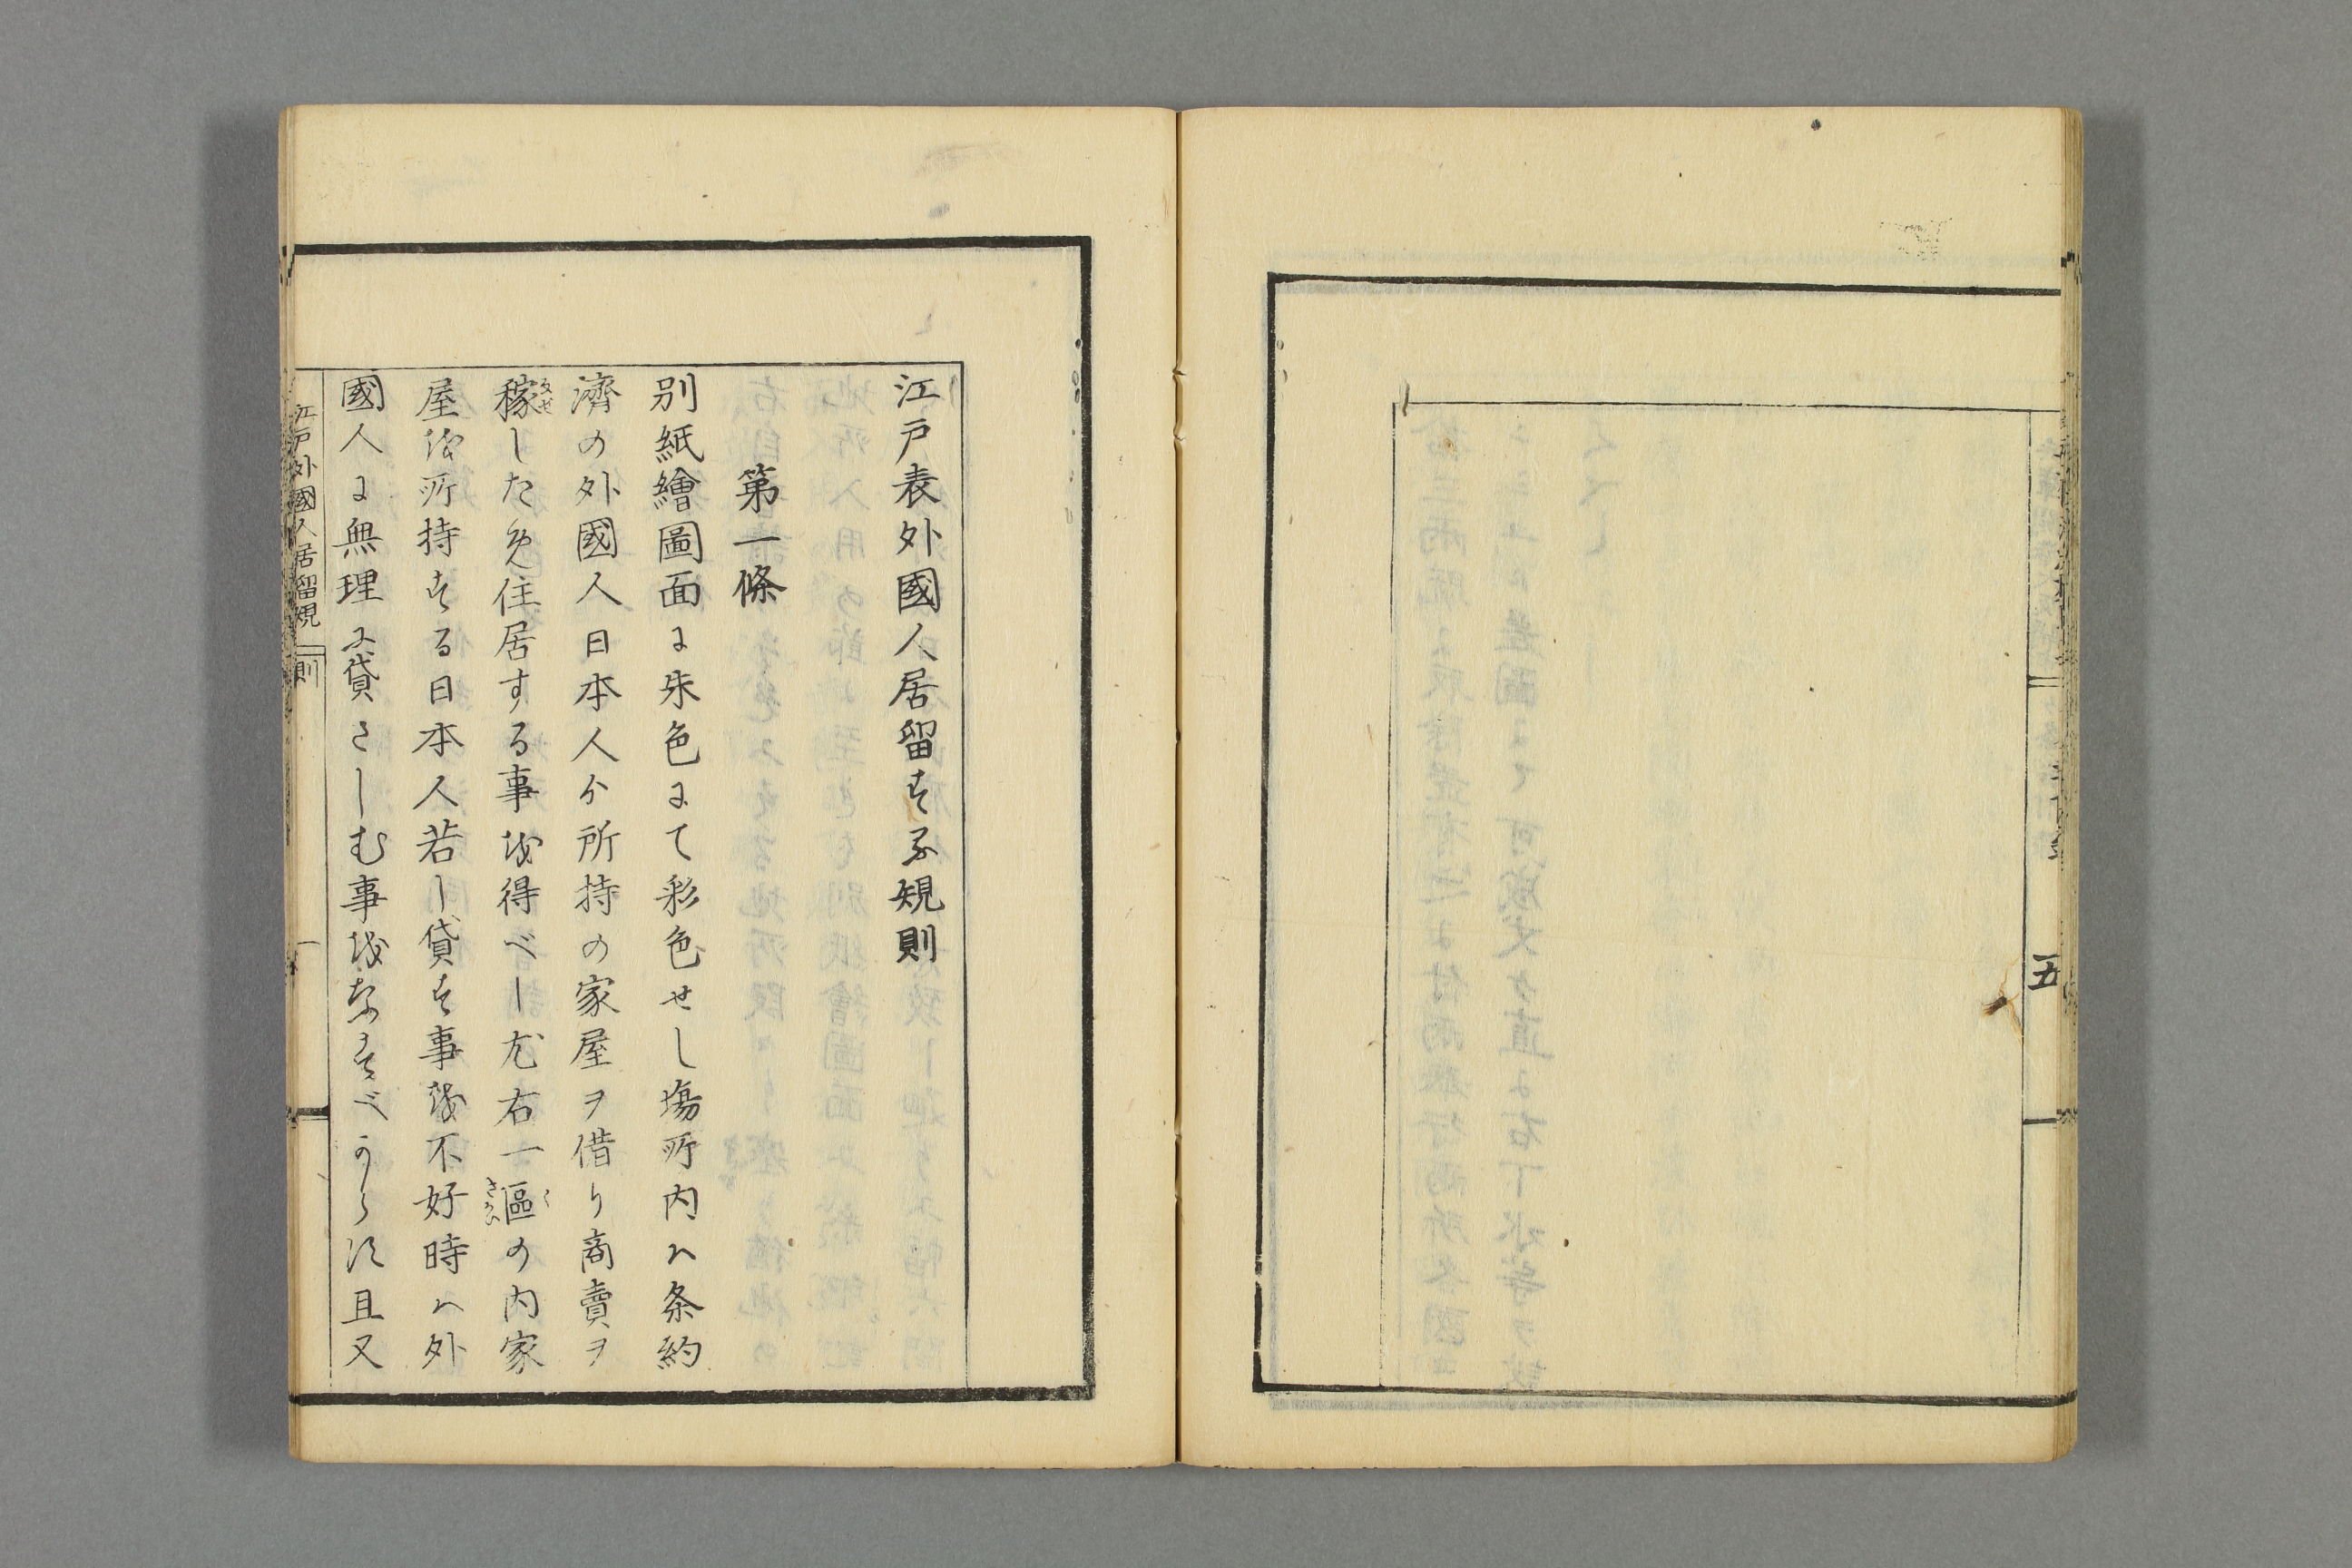 五
江戸表外國人居留する規則
第一條
別紙繪圖面に朱色にて彩色せし塲所内ハ条約
濟の外國人日本人より所持の家屋ヲ借り商賣ヲ
稼したため住居する事を得べし尤右一區の内家
屋を所持する日本人若し貸す事を不好時ハ外
國人に無理に貸さしむ事をなすべからず且又
江戸外國人居留規則
一